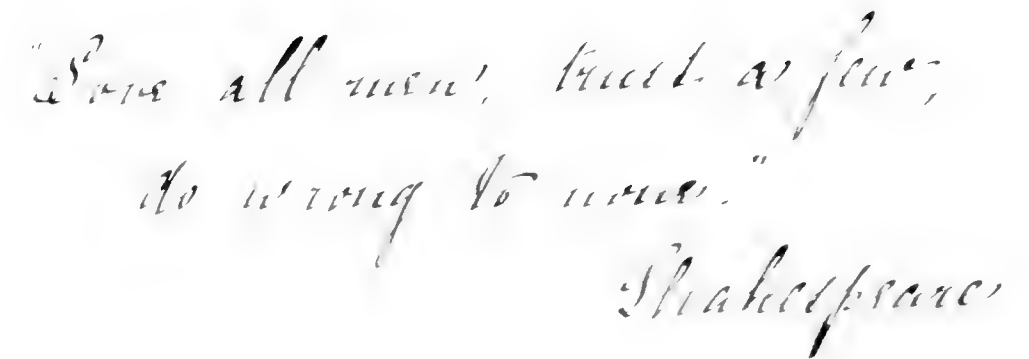 "Love all men, trust a few,
do wrong to none."
Shakespeare